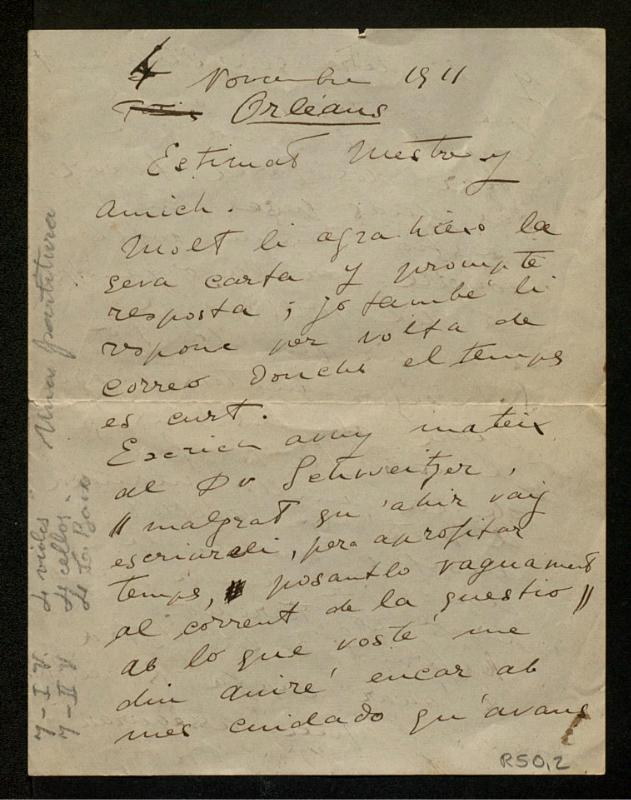 4 Novembre 1911
Orléans
Estimat Mestre y
amich.
Molt li agraheixo la
seva carta y prompte
resposta; jo també li
responc per volta de
correo donchs el temps
es curt.
Escrich avuy mateix
al Dr Schweitzer,
"malgrat qu'ahir vaig
escriureli, pera aprofitar
temps, posantlo vagament
al corrent de la questio"
ab lo que vosté me
diu aniré encar ab
mes cuidado qu'avans
Una partitura
7 - I V. 4 violes
7 - II V. 4 cellos.
4 C. Baix
R50,2